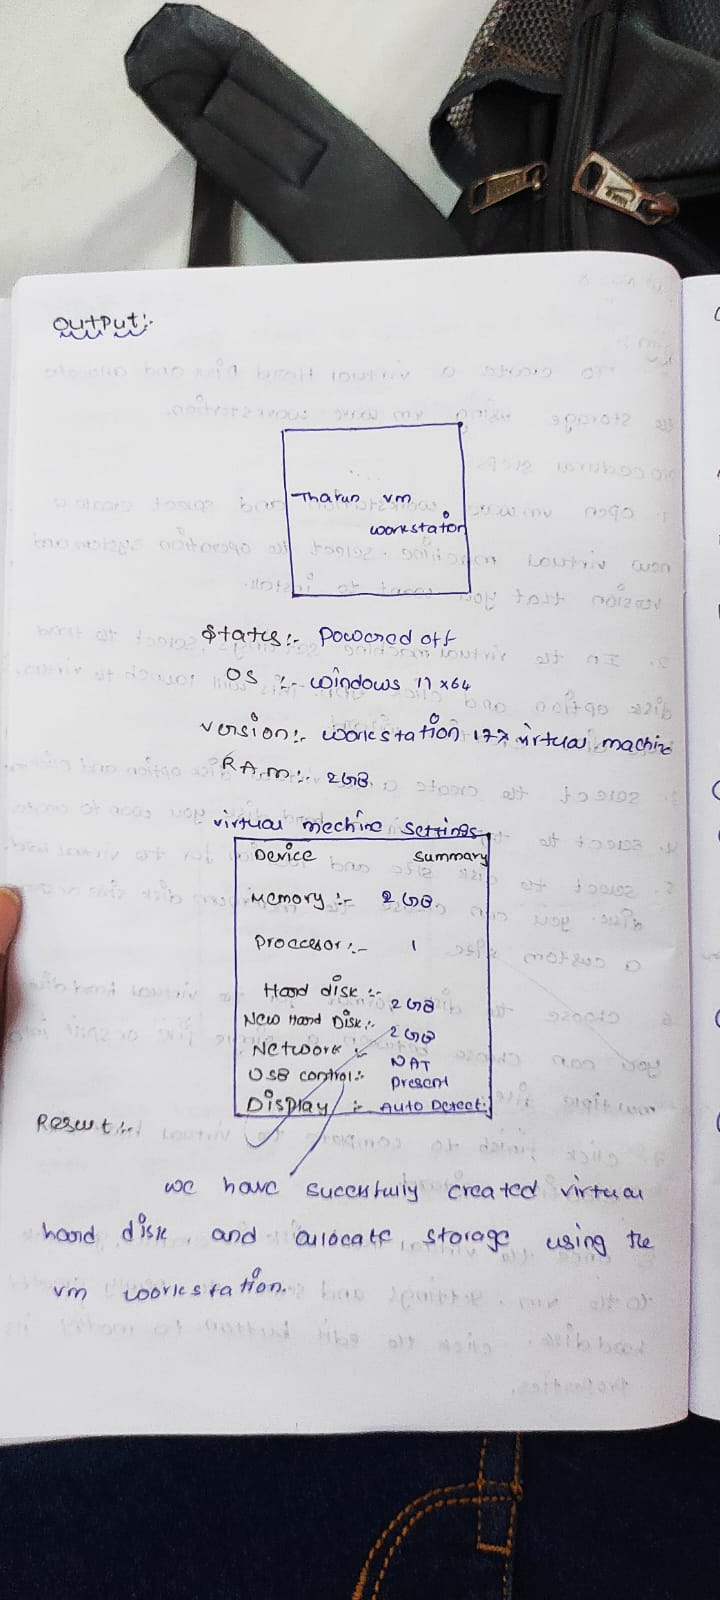 Output:-
Tharun vm
workstation
Status:- Powered off
OS :- windows 11 x64
version:- workstation 17.x virtual machine
RAM:- 2GB
virtual mechine settings
Device Summary
Memory :- 2GB
Proccesor :- 1
Hard disk :- 2GB
New Hard Disk :- 2GB
Network :- NAT
USB control :- Present
Display :- Auto Detect
Result:-
we have succesfully created virtual
hard disk, and allocate, storage using the
vm workstation.